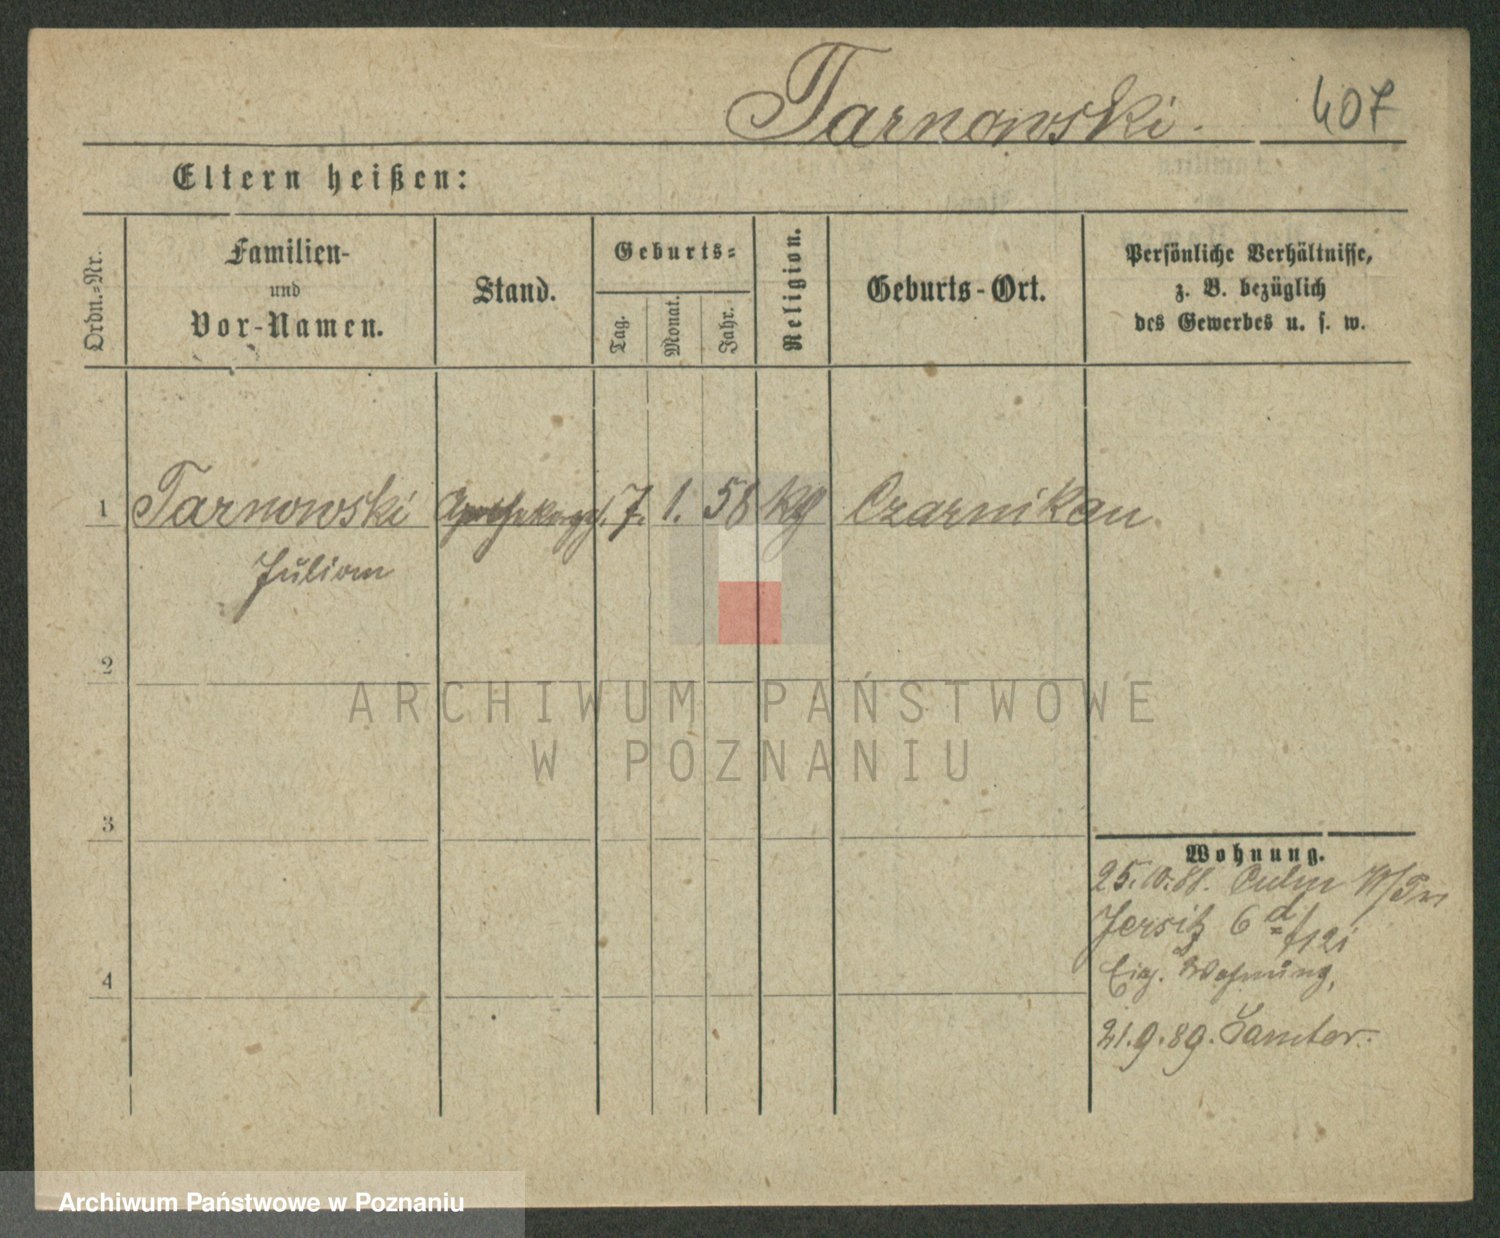 Tarnowski. 407
Eltern heißen:
Ordn.-Nr.
Familien-
und
Vor-Namen.
Stand.
Geburts-
Tag.
Monat.
Jahr.
Religion.
Geburts-Ort.
Persönliche Verhältnisse,
z. B. bezüglich
des Gewerbes u. s. w.
1 Tarnowski 7. 1. 58 Czarnikau
Julian
2
ARCHIWUM PAŃSTWOWE
W POZNANIU
3
4
Wohnung.
25.10.88. Culm W/Pr
Jersitz 6
Eig. Wohnung,
21.9.89. Samter.
Archiwum Państwowe w Poznaniu